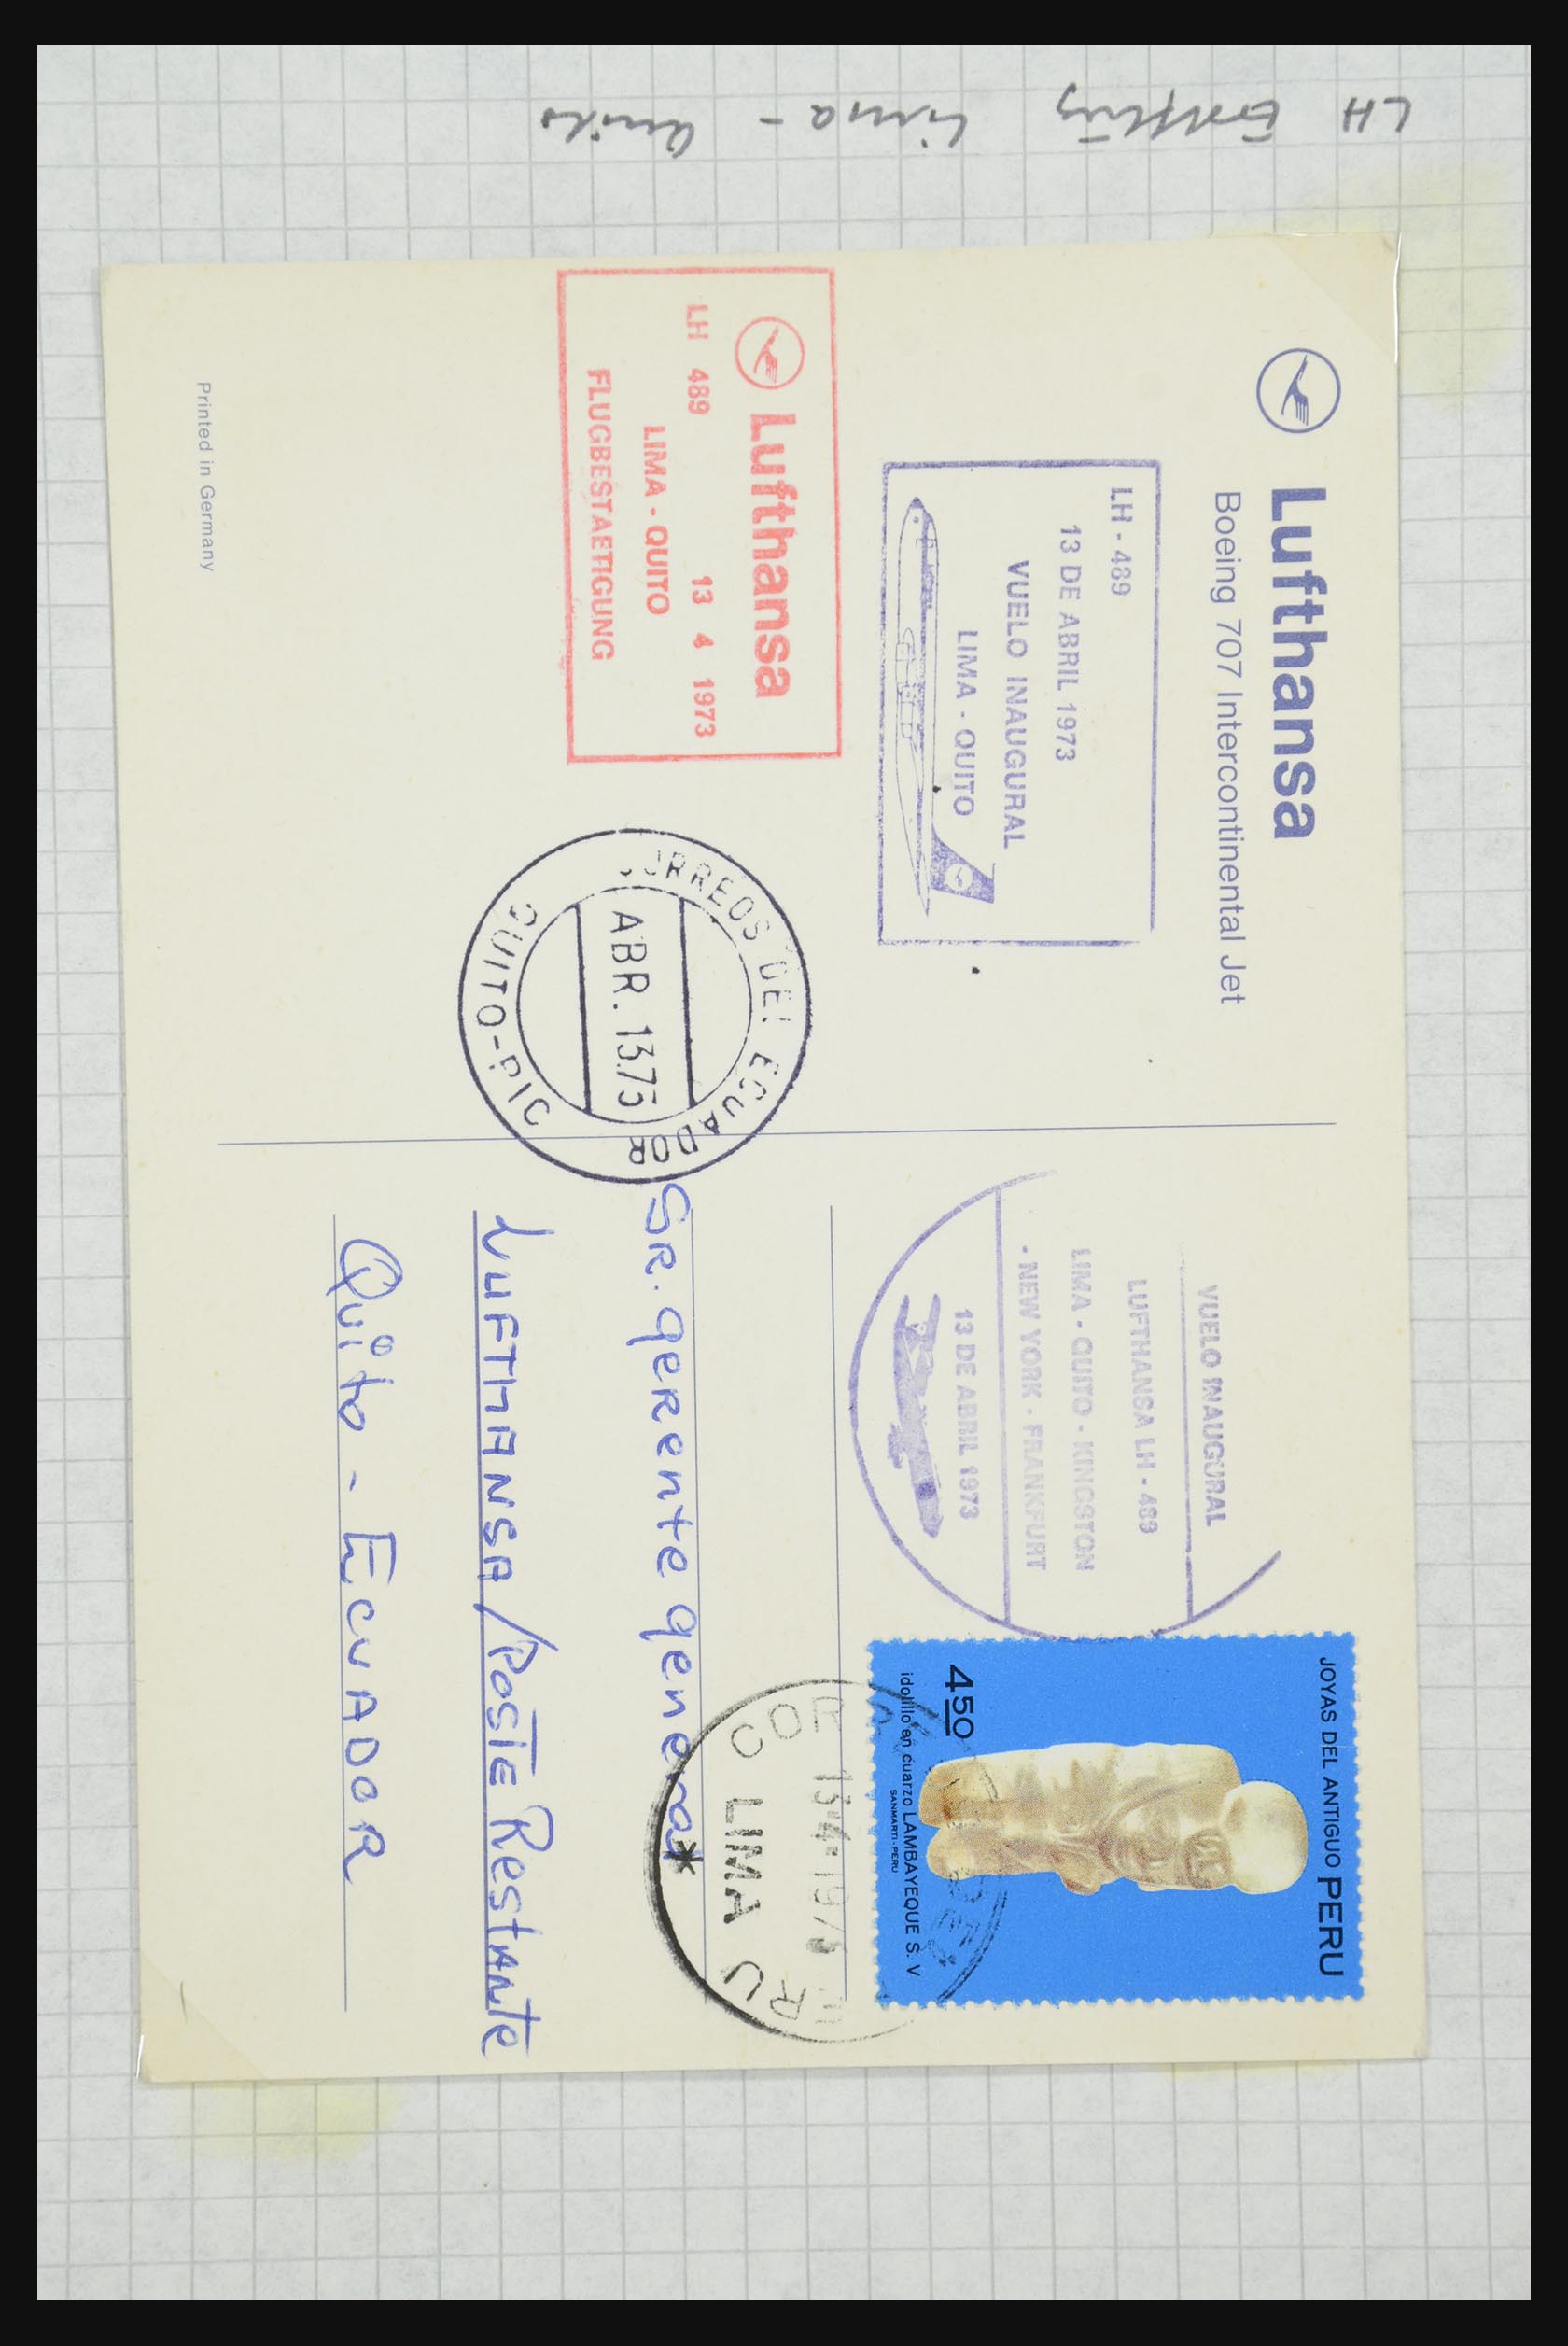 LH Erstflug Lima - Quito
Lufthansa
Boeing 707 Intercontinental Jet
LH - 489
13 DE ABRIL 1973
VUELO INAUGURAL
LIMA - QUITO
Lufthansa
LH 489 13 4 1973
LIMA - QUITO
FLUGBESTAETIGUNG
Printed in Germany
CORREOS DEL ECUADOR
ABR. 13.73
QUITO-PIC
VUELO INAUGURAL
LUFTHANSA LH - 489
LIMA - QUITO - KINGSTON
- NEW YORK - FRANKFURT
13 DE ABRIL 1973
JOYAS DEL ANTIGUO PERU
450
idolillo en cuarzo LAMBAYEQUE S. V
SANMARTI - PERU
13·4·1973
LIMA
SR. gerente general
LUFTHANSA/POSTE Restante
Quito - ECUADOR